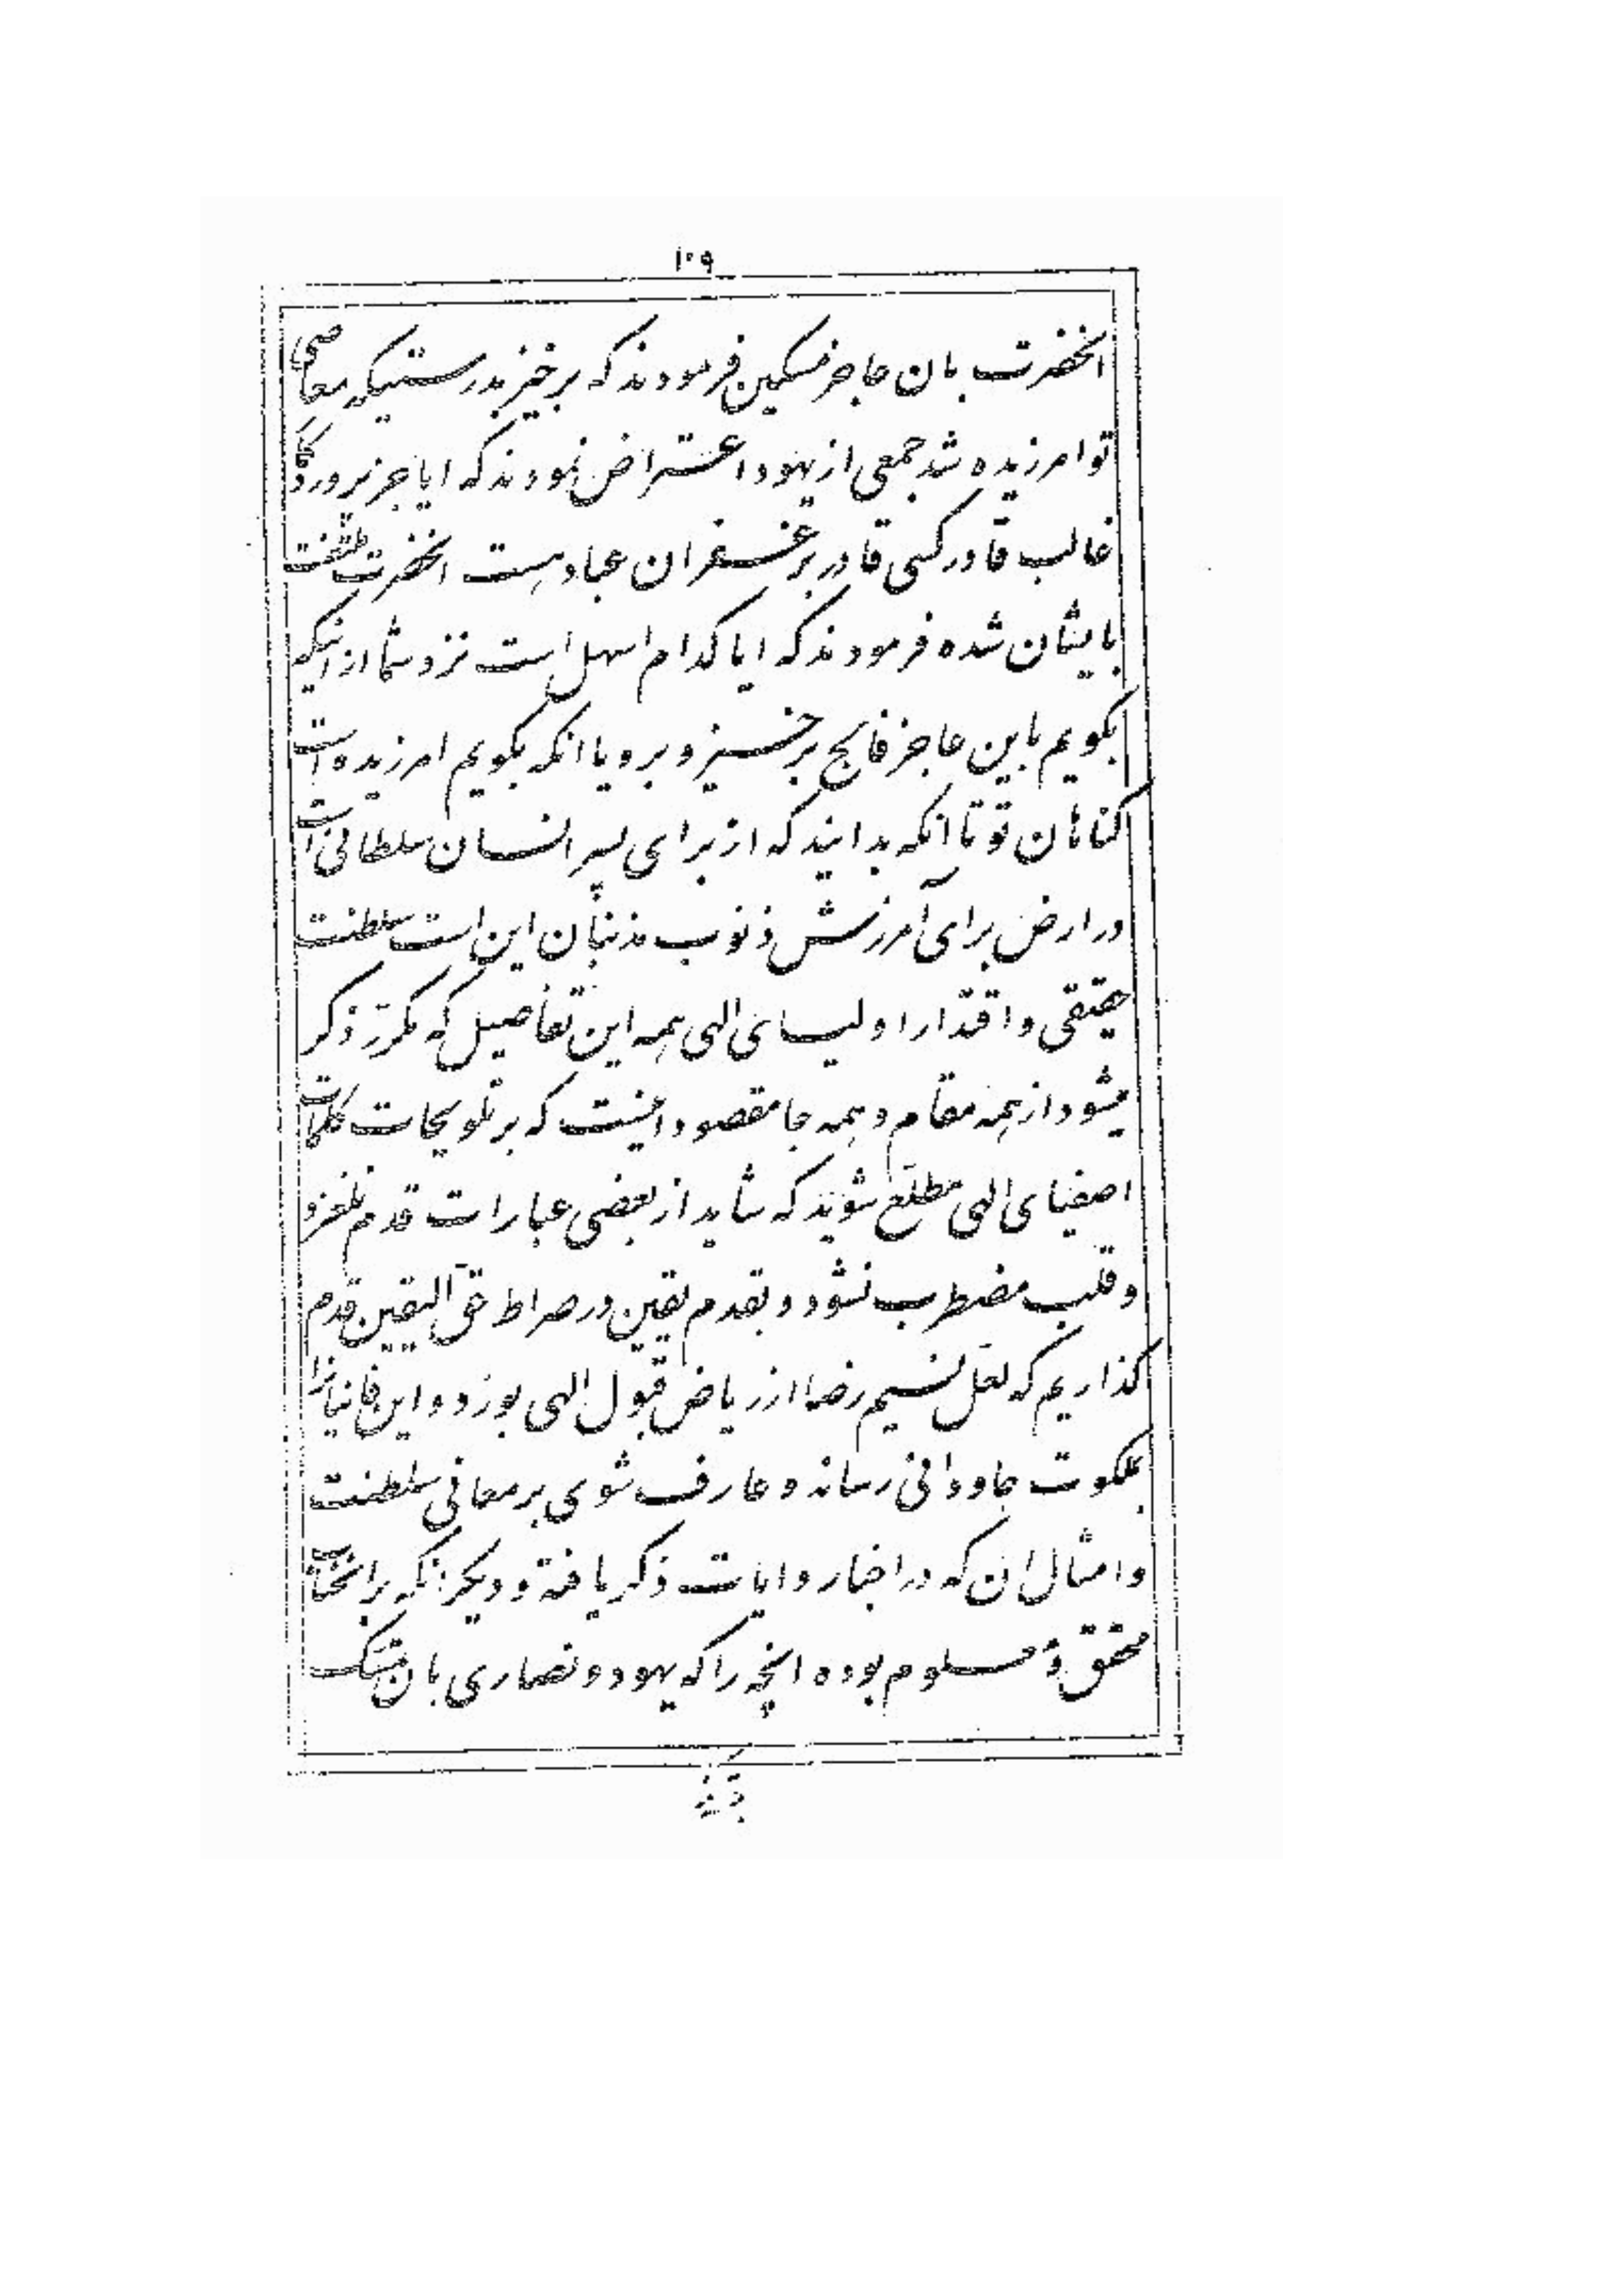 ١٠٩
انحضرت بان عاجز مسکین فرمودند که برخیز بدرستیکه معاصی
تو امرزیده شد جمعی از یهود اعتراض نمودند که ایا جز پروردکار
غالب قادر کسی قادر بر غفران عباد هست انحضرت ملتفت
بایشان شده فرمودند که ایا کدام اسهل است نزد شما از اینکه
بکویم باین عاجز فالج برخیز و برو یا انکه بکویم امرزیده است
کناهان تو تا انکه بدانید که از برای پسر انسان سلطانی است
در ارض برای آمرزش ذنوب مذنبان این است سلطنت
حقیقی و اقتدار اولیای الهی همه این تفاصیل که مکرّر ذکر
میشود از همه مقام و همه جا مقصود اینست که بر تلویحات کلمات
اصفیای الهی مطلّع شوید که شاید از بعضی عبارات قدم نلغزد
و قلب مضطرب نشود و بقدم یقین در صراط حقّ الیقین قدم
کذاریم که لعلّ نسیم رضا از ریاض قبول الهی بوزد و این فانیانرا
بملکوت جاودانی رساند و عارف شوی بر معانی سلطنت
و امثال ان که در اخبار و ایات ذکر یافته و دیکر انکه بر انجناب
محقّق و معلوم بوده انچه را که یهود و نصاری بان تمسّک